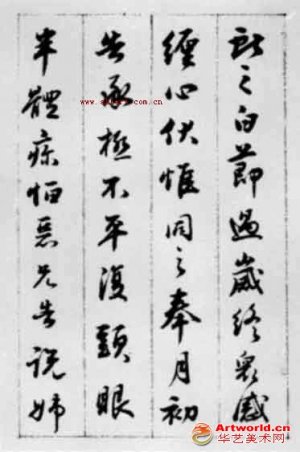 獻之白節過歲終衆感
纏心伏惟同之奉月初
告承極不平復頭眼
半體疼恒惡兄告說姊
Artworld.cn
华艺美术网